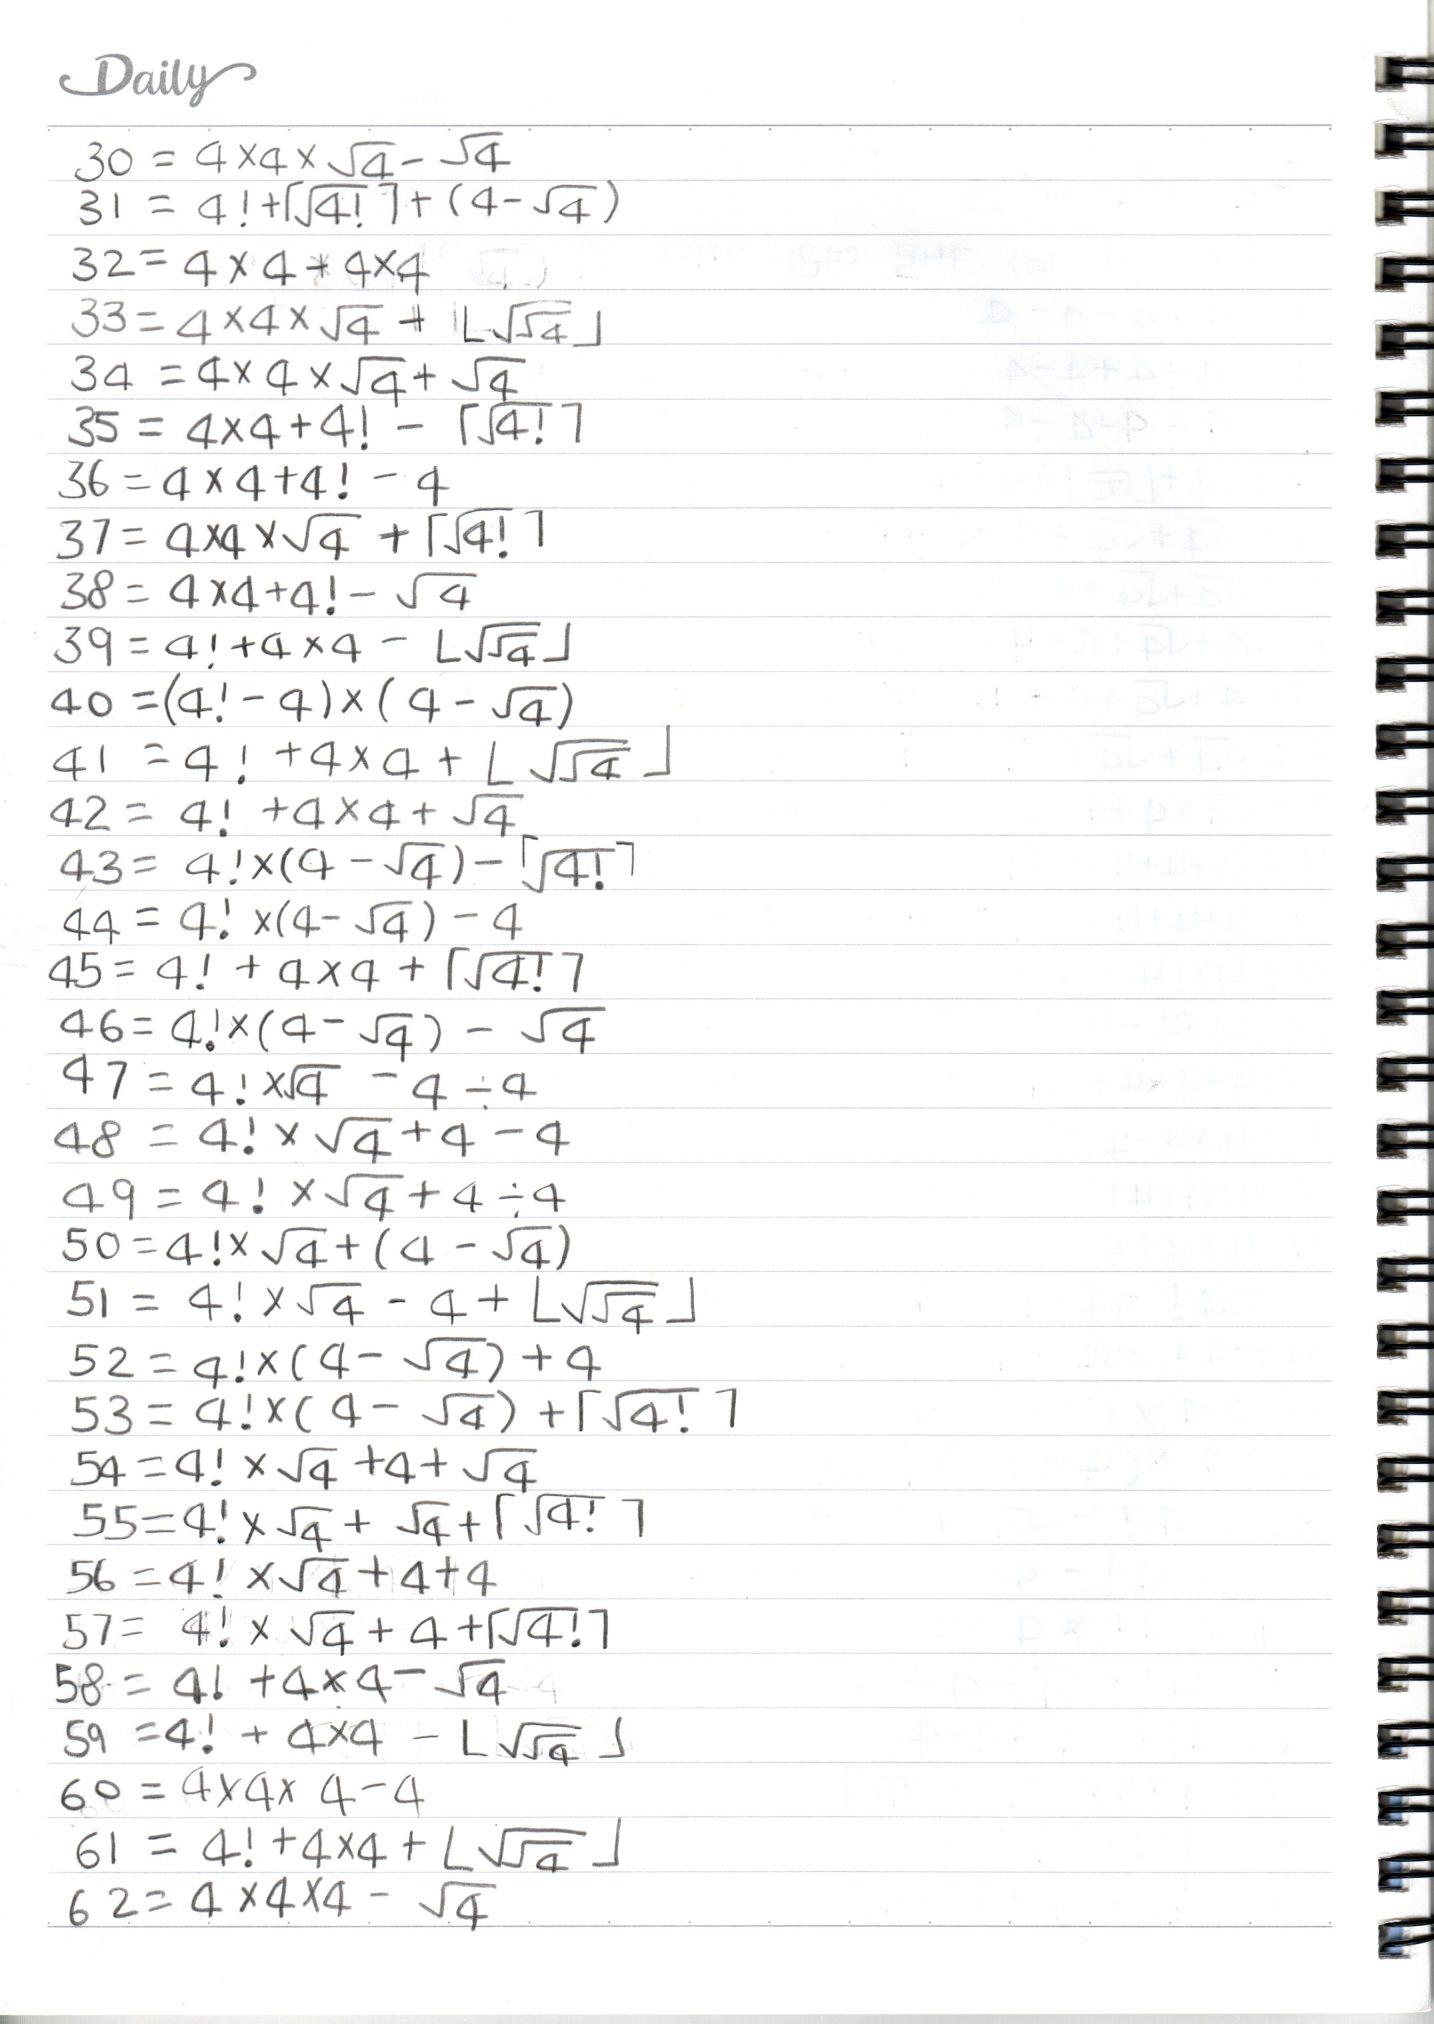 Daily
30 = 4×4×√4 - √4
31 = 4!+⌈√4!⌉+(4-√4)
32 = 4×4+4×4
33 = 4×4×√4 + ⌊√√4⌋
34 = 4×4×√4+√4
35 = 4×4+4! - ⌈√4!⌉
36 = 4×4+4! - 4
37 = 4×4×√4 + ⌈√4!⌉
38 = 4×4+4! - √4
39 = 4!+4×4 - ⌊√√4⌋
40 = (4!-4)×(4-√4)
41 = 4! +4×4+⌊√√4⌋
42 = 4! +4×4+√4
43 = 4!×(4-√4)-⌈√4!⌉
44 = 4! ×(4-√4) - 4
45 = 4! + 4×4 + ⌈√4!⌉
46 = 4!×(4-√4) - √4
47 = 4!×√4 - 4÷4
48 = 4!×√4+4-4
49 = 4!×√4+4÷4
50 = 4!×√4+(4-√4)
51 = 4!×√4-4+⌊√√4⌋
52 = 4!×(4-√4)+4
53 = 4!×(4-√4)+⌈√4!⌉
54 = 4!×√4+4+√4
55 = 4!×√4+√4+⌈√4!⌉
56 = 4!×√4+4+4
57 = 4!×√4+4+⌈√4!⌉
58 = 4! +4×4-√4
59 = 4! + 4×4 - ⌊√√4⌋
60 = 4×4×4-4
61 = 4!+4×4+⌊√√4⌋
62 = 4×4×4 - √4